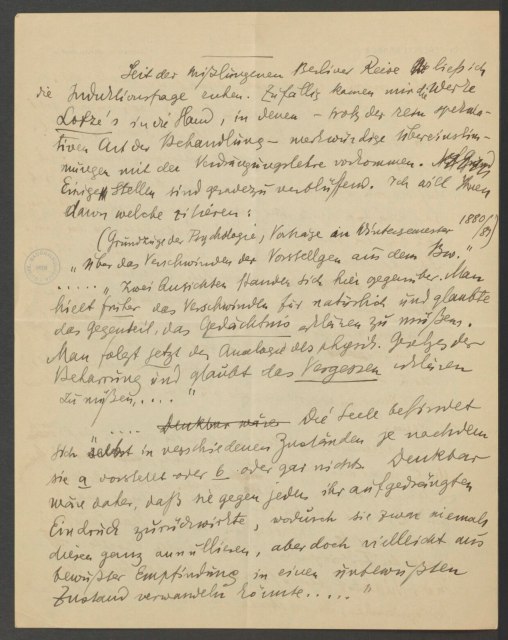 Seit der mißlungenen Berliner Reise ließ ich
die Induktionsfrage ruhen. Zufällig kamen mir die Werke
Lotze's in die Hand, in denen – trotz der rein spekula-
tiven Art der Behandlung – merkwürdige Übereinstim-
mungen mit der Verdrängungslehre vorkommen.
Einige Stellen sind geradezu verblüffend. Ich will Ihnen
davon welche zitieren:
(Grundzüge der Psychologie, Vorträge im Wintersemester 1880/81)
"Über das Verschwinden der Vorstellgen aus dem Bw."
..... "Zwei Ansichten standen sich hier gegenüber. Man
hielt früher das Verschwinden für natürlich und glaubte
das Gegenteil, das Gedächtnis erklären zu müßen.
Man folgt jetzt der Analogie des physik. Gesetzes der
Beharrung und glaubt das Vergessen erklären
zu müßen,....."
..... Denkbar wäre Die Seele befindet
sich selbst in verschiedenen Zuständen je nachdem
sie a vorstellt oder b oder gar nichts. Denkbar
wäre daher, daß sie gegen jeden ihr aufgedrängten
Eindruck zurückwirkte, wodurch sie zwar niemals
diesen ganz annullieren, aber doch vielleicht aus
bewußter Empfindung in einen unbewußten
Zustand verwandeln könnte....."